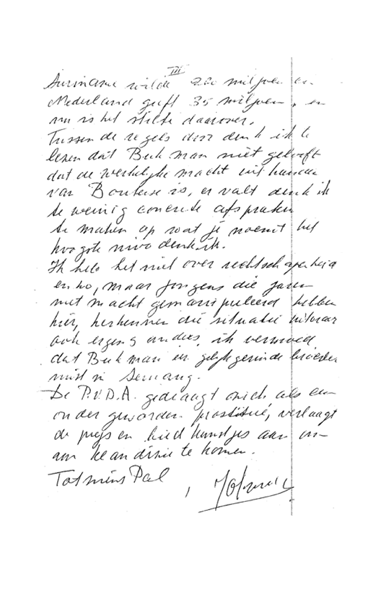 III
Suriname wilde 200 miljoen en
Nederland geeft 35 miljoen, en
nu is het stilte daarover.
Tussen de regels door denk ik te
lezen dat Buckman niet gelooft
dat de werkelijke macht uit handen
van Bouterse is, er valt denk ik
te weinig concrete afspraken
te maken op wat je noemt het
hoogste nivo denk ik.
Ik heb het niet over rechtschapenheid
en zo, maar jongens die jaren
met macht gemanipuleerd hebben
hier, herkennen die situatie
ook ergens anders, ik vermoed
dat Buckman en
niet in
De P.v.D.A. gedraagt zich als een
ouder geworden prostituée, verlaagt
de prijs en biedt kunstjes aan om
aan klandizie te komen.
Tot